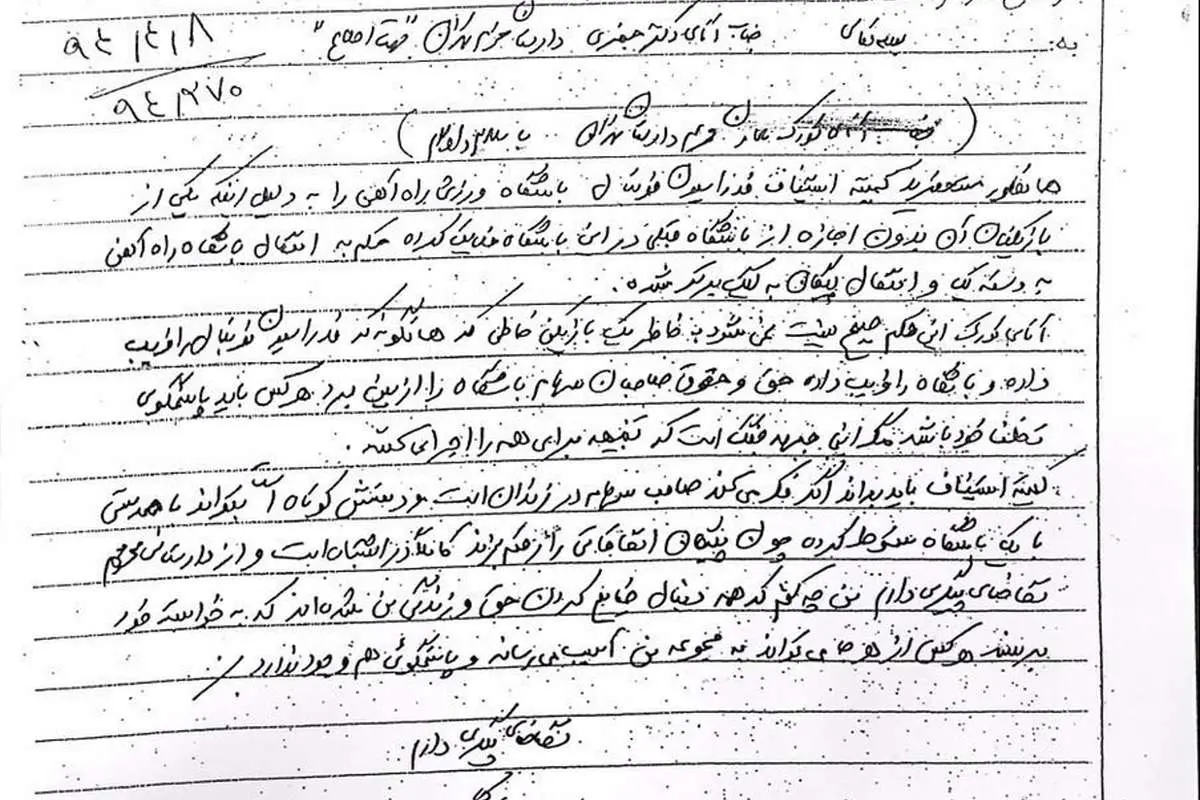 به: جناب آقای دکتر جعفری دادستان محترم تهران "جهت اطلاع" ۹۴/۴/۱۸
۹۴/۲۷۰
(جناب آقای کورک سازان محترم دادستان تهران با سلام و احترام)
همانطور مستحضرید کمیته استیناف فدراسیون فوتبال باشگاه ورزشی راه آهن را به دلیل اینکه یکی از
بازیکنان آن بدون اجازه از باشگاه قبلی در این باشگاه حکم به انتقال باشگاه راه آهن
به دسته یک و انتقال پیکان به لیگ برتر شده.
آقای کورک این حکم صحیح نیست نمی شود بخاطر یک بازیکن خاطی که همانگونه که فدراسیون فوتبال را فریب
داده و باشگاه را فریب داده حق و حقوق صاحبان سهام باشگاه را از بین برد هر کس باید پاسخگوی
تخلف خود باشد مگر این جبهه جنگ است که تنبیه برای همه را اجرا می کنند.
کمیته استیناف باید بداند اگر فکر می کند صاحب سهام در زندان است و دستش کوتاه است بتواند با همدستی
با یک باشگاه سقوط کرده چون پیکان اتفاقاتی را رقم بزند کاملاً در اشتباه است و از دادستانی محترم
تقاضای پیگیری دارم من چه کنم که همه دنبال ضایع کردن حق و زندگی من شده اند که به خواسته خود
برسند هر کس از هر جا می تواند به مجموعه من آسیب می رساند و پاسخگوئی هم وجود ندارد.
تقاضای پیگیری دارم